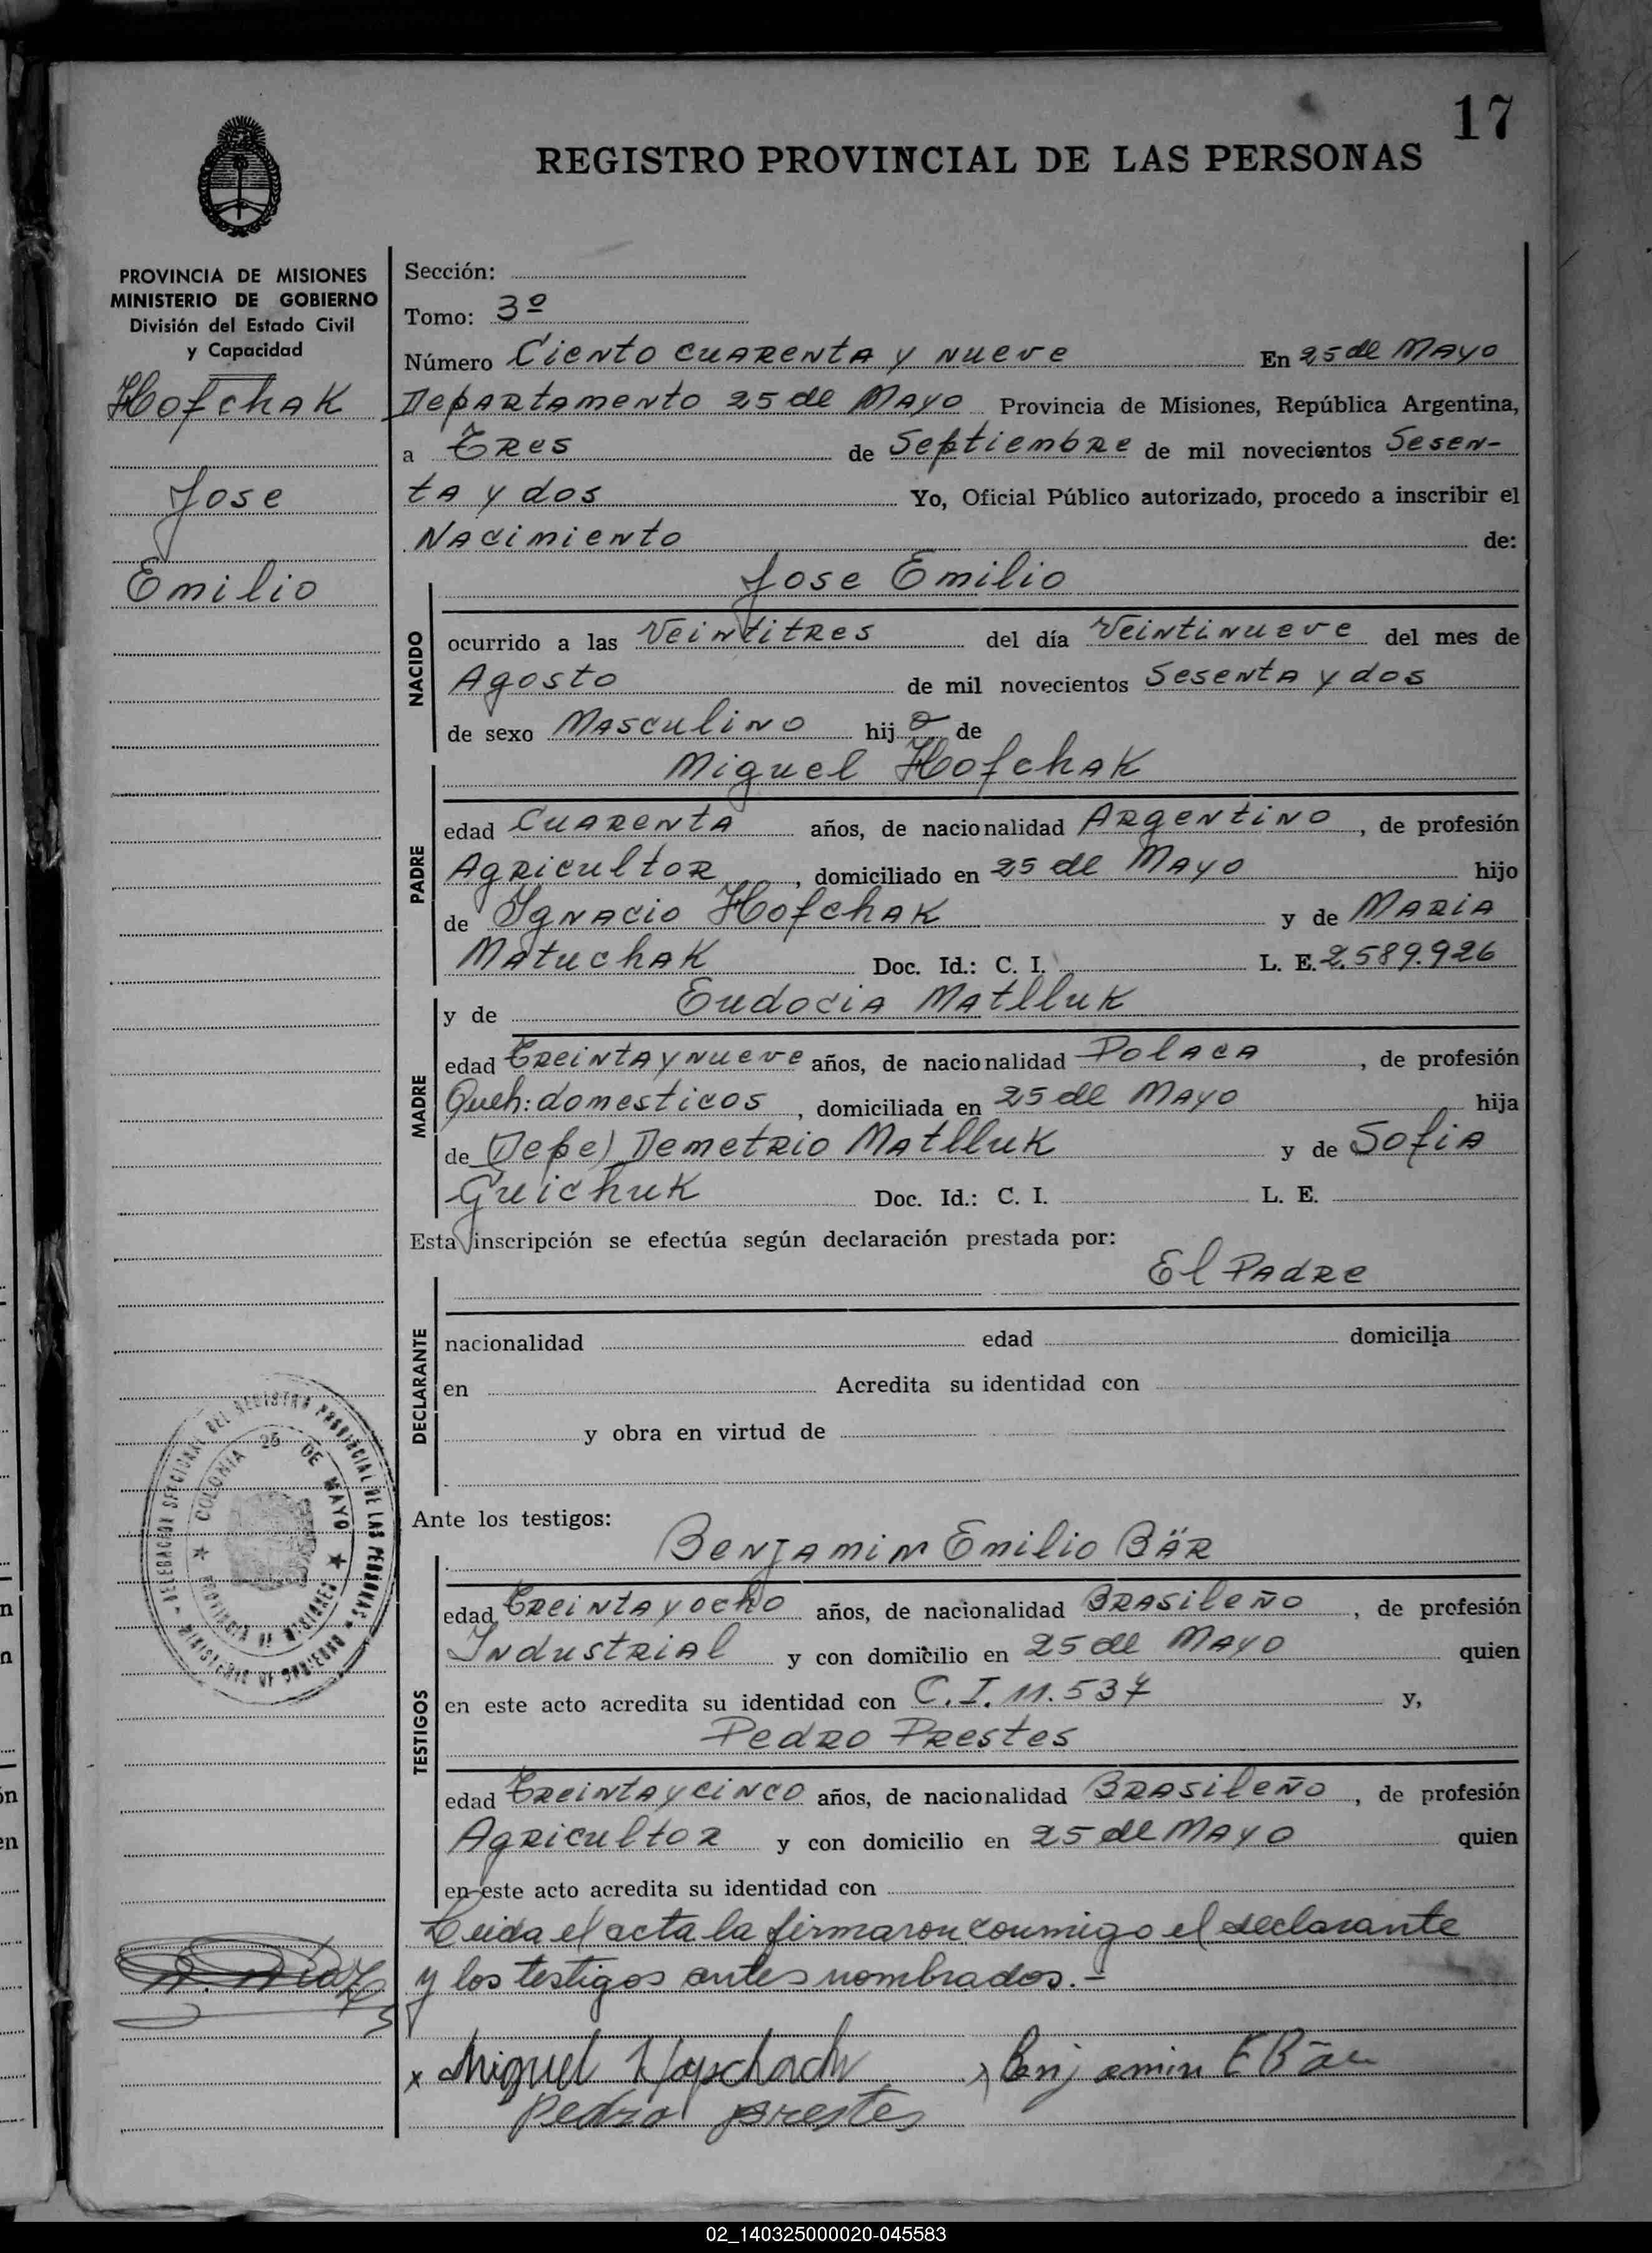 17
REGISTRO PROVINCIAL DE LAS PERSONAS
PROVINCIA DE MISIONES
MINISTERIO DE GOBIERNO
División del Estado Civil
y Capacidad
Hofchak
Jose
Emilio
Sección:
Tomo: 3º
Número Ciento cuarenta y nueve En 25 de Mayo
Departamento 25 de Mayo Provincia de Misiones, República Argentina,
a Tres de Septiembre de mil novecientos Sesen-
ta y dos Yo, Oficial Público autorizado, procedo a inscribir el
Nacimiento de:
Jose Emilio
NACIDO
ocurrido a las Veintitres del día Veintinueve del mes de
Agosto de mil novecientos Sesenta y dos
de sexo Masculino hijo de
Miguel Hofchak
PADRE
edad Cuarenta años, de nacionalidad Argentino, de profesión
Agricultor, domiciliado en 25 de Mayo hijo
de Ignacio Hofchak y de Maria
Matuchak Doc. Id.: C. I. L. E. 2.589.926
y de Eudocia Matlluk
MADRE
edad Treinta y nueve años, de nacionalidad Polaca, de profesión
Queh: domesticos, domiciliada en 25 de Mayo hija
de (Defe) Demetrio Matlluk y de Sofia
Guichuk Doc. Id.: C. I. L. E.
Esta inscripción se efectúa según declaración prestada por:
El Padre
DECLARANTE
nacionalidad edad domicilia
en Acredita su identidad con
y obra en virtud de
Ante los testigos:
Benjamin Emilio Bär
TESTIGOS
edad Treinta y ocho años, de nacionalidad Brasileño, de profesión
Industrial y con domicilio en 25 de Mayo quien
en este acto acredita su identidad con C.I. 11.537 y,
Pedro Prestes
edad Treinta y cinco años, de nacionalidad Brasileño, de profesión
Agricultor y con domicilio en 25 de Mayo quien
en este acto acredita su identidad con
Leida el acta la firmaron conmigo el declarante
y los testigos antes nombrados.-
x Miguel Benjamin E Bär
Pedro prestes
DELEGACION SECCIONAL DEL REGISTRO PROVINCIAL DE LAS PERSONAS
MINISTERIO DE GOBIERNO
COLONIA 25 DE MAYO
PROVINCIA DE MISIONES
02_140325000020-045583